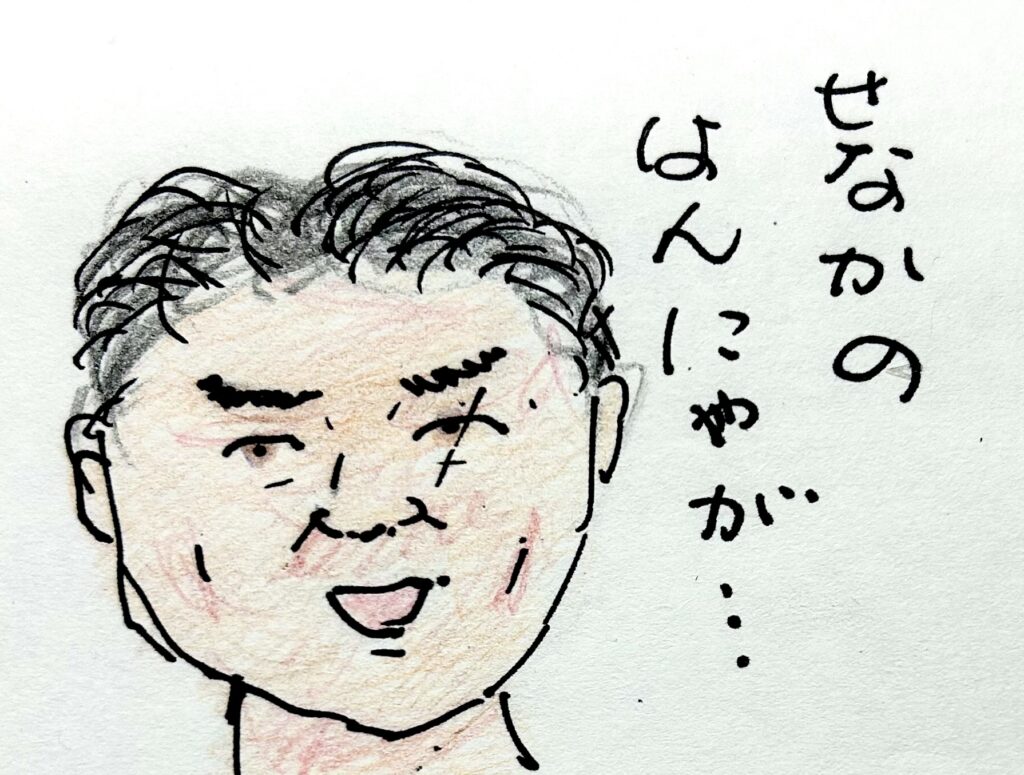 せなかの
はんにゃが…